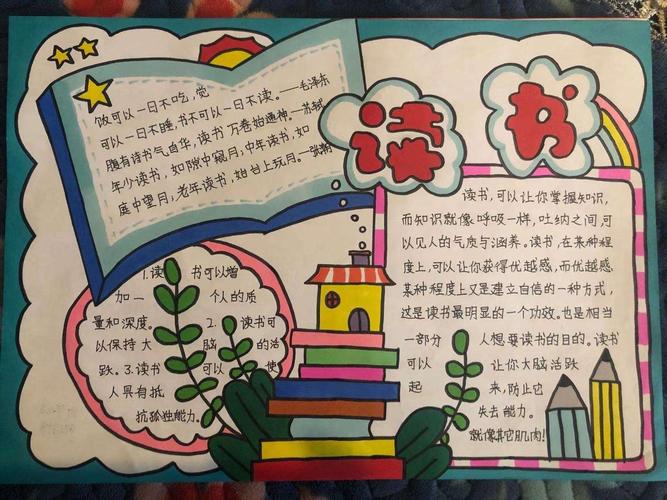 读书
饭可以一日不吃,觉
可以一日不睡,书不可以一日不读。——毛泽东
腹有诗书气自华,读书万卷始通神。——苏轼
年少读书,如隙中窥月;中年读书,如
庭中望月;老年读书,如台上玩月。——张潮
1.读书可以增
加一个人的质
量和深度。
2.读书可
以保持大脑的活
跃。3.读书可以使
人具有抵
抗孤独能力。
读书,可以让你掌握知识,
而知识就像呼吸一样,吐纳之间,可
以见人的气质与涵养。读书,在某种程
度上,可以让你获得优越感,而优越感
某种程度上又是建立自信的一种方式,
这是读书最明显的一个功效。也是相当
一部分人想要读书的目的。读书
可以让你大脑活跃
起来,防止它
失去能力。
就像其它肌肉!